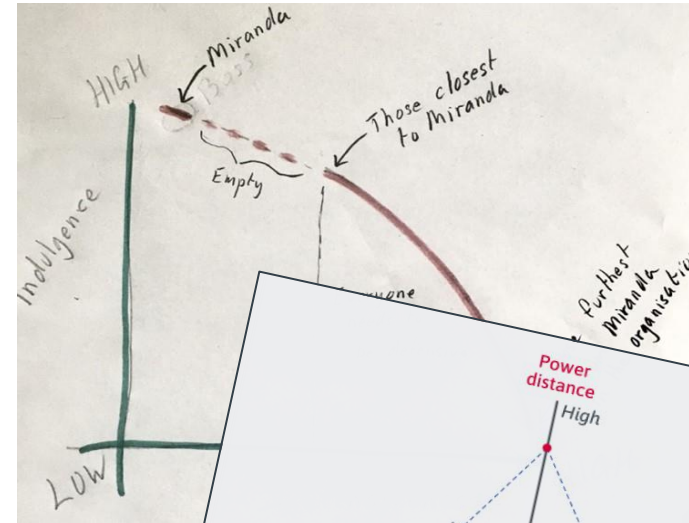 Miranda
HIGH
Boss
Those closest
to Miranda
Empty
Indulgence
furthest
Miranda
LOW
Power
distance
High